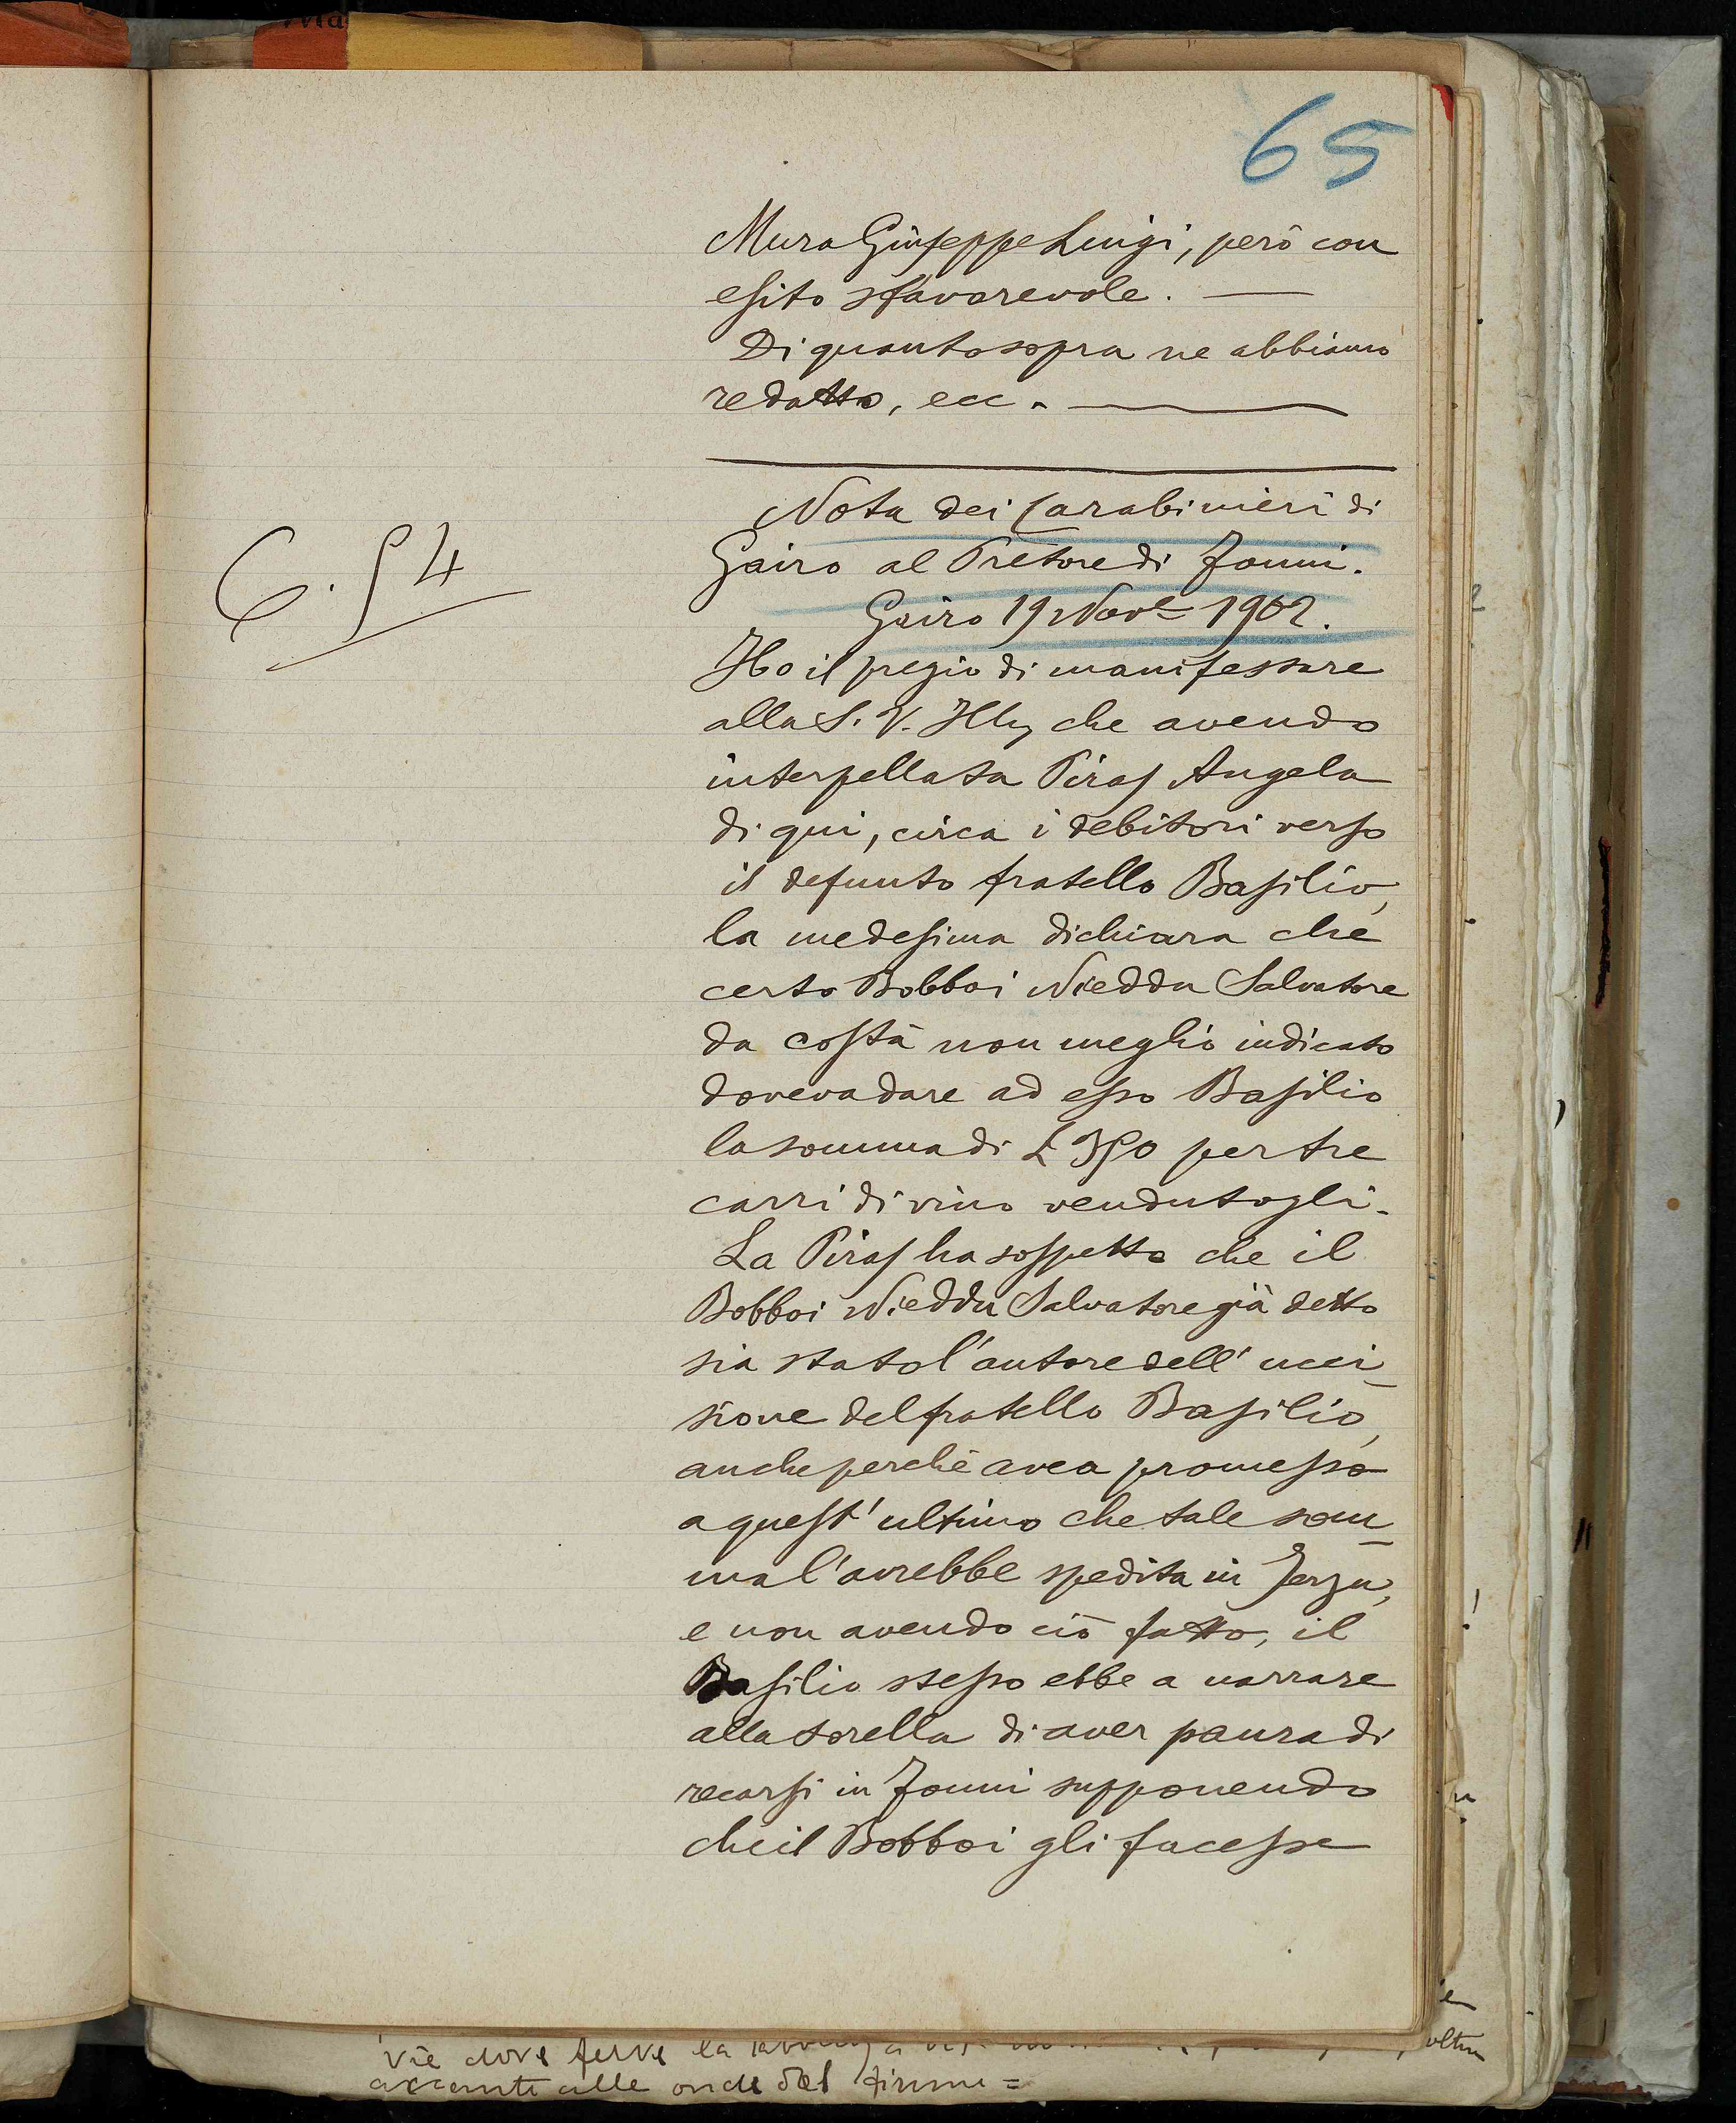 65
Mura Giuseppe Luigi, però con
esito sfavorevole. —
Di quanto sopra ne abbiamo
redatto, ecc. —
Nota dei Carabinieri di
Gairo al Pretore di Jonni.
C. 54
Gairo 19 Nov.e 1902.
Ho il pregio di manifestare
alla S. V. Ill. che avendo
interpellata Piras Angela
di qui, circa i debitori verso
il defunto fratello Basilio,
la medesima dichiara che
certo Bobboi Nieddu Salvatore
da costà non meglio indicato
doveva dare ad esso Basilio
la somma di £ 350 per tre
carri di vino vendutogli.
La Piras ha sospetto che il
Bobboi Nieddu Salvatore già detto
sia stato l'autore dell'ucci_
sione del fratello Basilio,
anche perchè avea promesso
a quest'ultimo che tale som_
ma l'avrebbe spedita in Jerzu,
e non avendo ciò fatto, il
Basilio stesso ebbe a narrare
alla sorella di aver paura di
recarsi in Jonni supponendo
che il Bobboi gli facesse
vie dove ferve la
accanto alle onde del fiume =